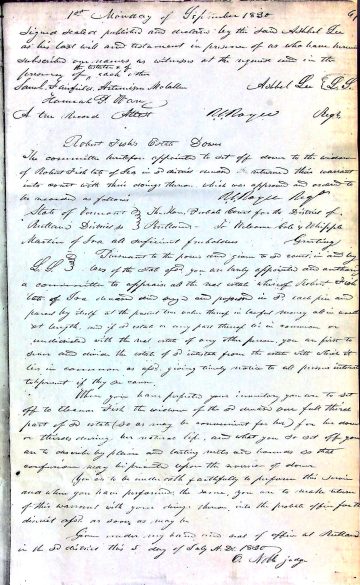 1st Monday of September 1830
Signed sealed published and declared by the said Ashbel Lee
as his last will and testament in presence of us who have hereunto
subscribed our names as witnesses at the request and in the
presence of the testator & of each other
Saml Fairfield Artemisia McCallen Ashbel Lee L.S.
Hannah G. Ware
A true Record Attest Regr
Robert Fish's Estate Dower
The committee heretofore appointed to set off dower to the widow
of Robert Fish late of Ira in sd district decesd returned this warrant
into court with their doings thereon which was approved and ordered to
be recorded as follows Regr
State of Vermont The Hon. Probate Court for the District of
Rutland District ss Rutland To Whipple
of Ira all sufficient freeholders Greeting
L.S. Pursuant to the power given to sd court in and by
laws of the state afsd, you are hereby appointed and authorized
a committee to appraise all the real estate whereof Robert Fish
late of Ira deceased died seized and possessed in sd each piece and
parcel by itself at the present true value thereof in lawful money all in words
at length, and if sd estate or any part thereof is in common or
undivided with the real estate of any other person, you are first to
sever and divide the estate of sd intestate from the estate with which it
lies in common as afsd giving timely notice to all persons interested
to be present if they see cause
When you have perfected your inventory you are to set
off to Eleanor Fish the widow of the sd deceased one full third
part of sd estate (so as may be convenient for her) for her dower
or thirds during her natural life, and what you so set off you
are to describe by plain and lasting metes and bounds so that
confusion may be prevented upon the reversion of dower
You are to be under oath faithfully to perform this service
and when you have performed the same, you are to make return
of this warrant with your doings thereon into the probate office for the
district afsd as soon as may be
Given under my hand and seal of office at Rutland
in the sd district this 5 day of July A.D. 1830
judge